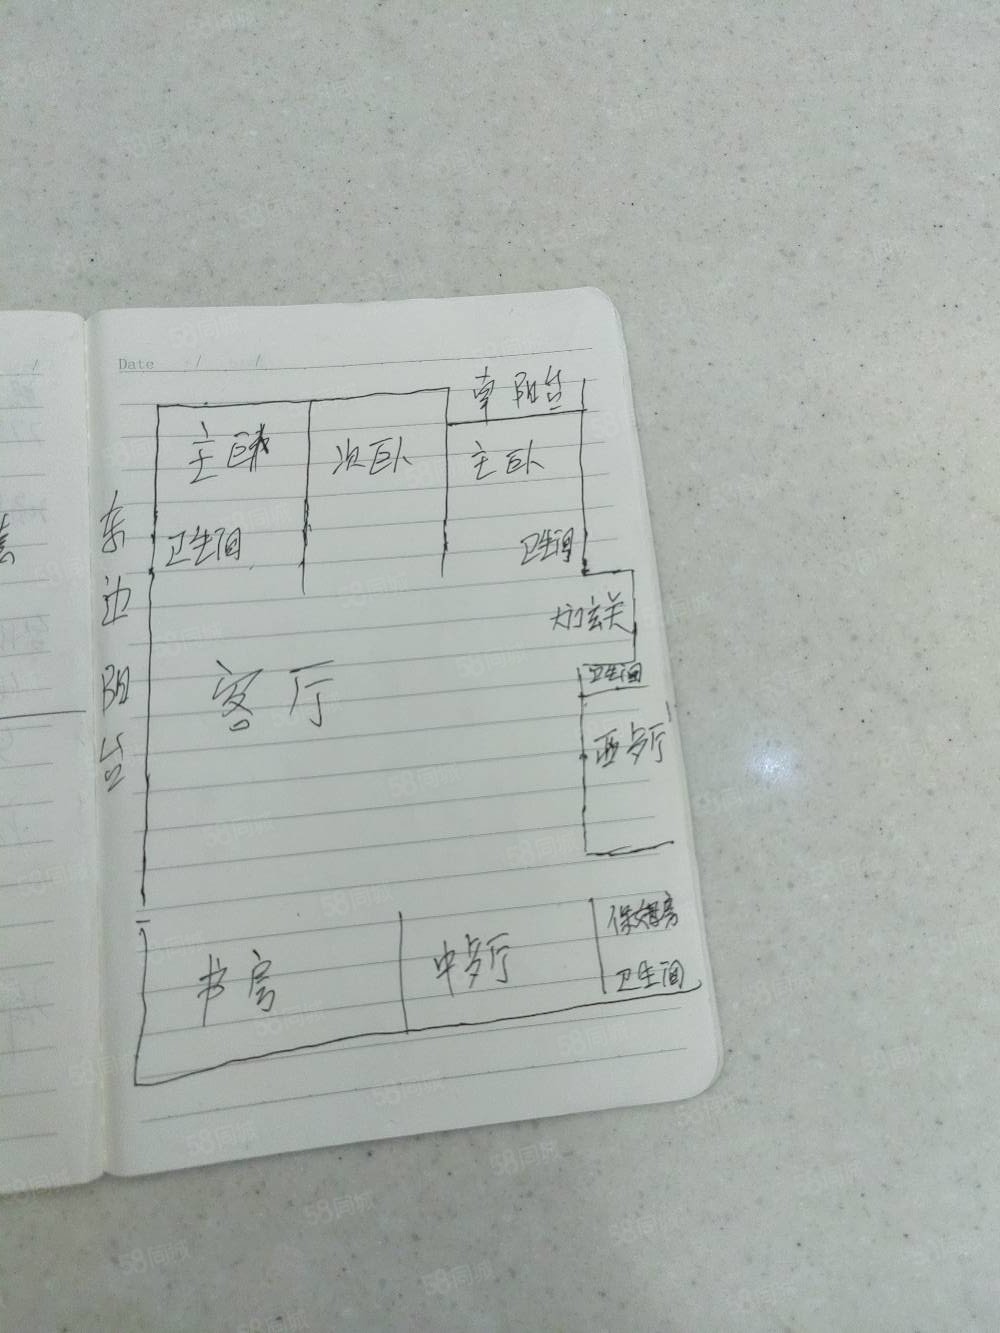 Date / /
南阳台
主卧
次卧
主卧
卫生间
卫生间
东边阳台
大门玄关
客厅
卫生间
西多厅
书房
中多厅
保姆房
卫生间
58同城